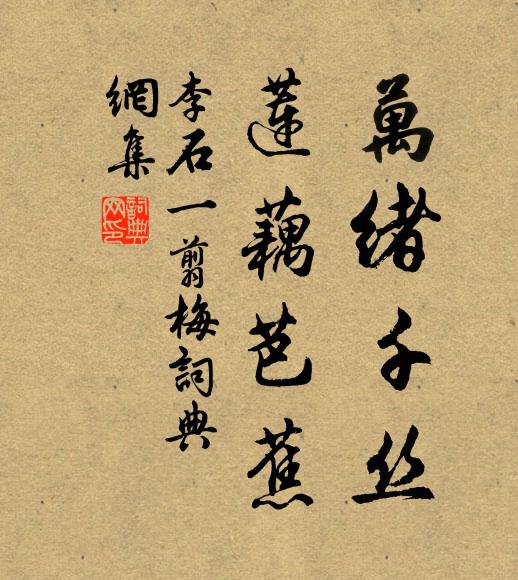 萬緒千丝
蓮藕芭蕉
李石一剪梅詞典
網集
詞典網印